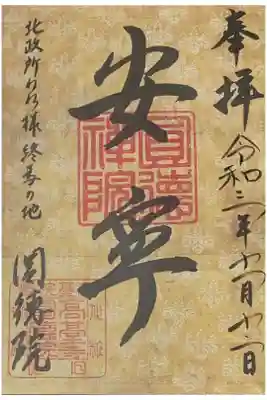 奉拝 令和三年十一月十二日
安寧
圓德禅院
北政所ねね様 終焉の地
圓徳院